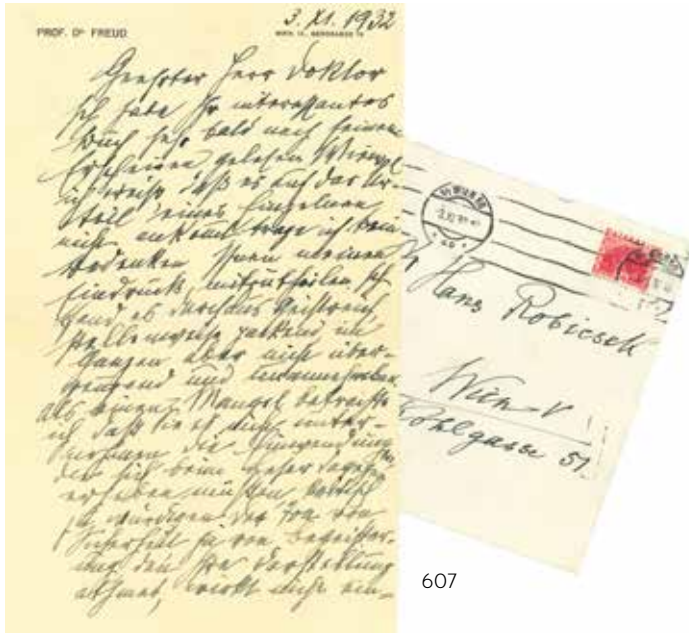 PROF. Dr FREUD
3. XI. 1932
WIEN, IX., BERGGASSE 19
Geehrter Herr Doktor
Ich habe Ihr interessantes
Buch sehr bald nach seinem
Erscheinen gelesen Wiewol
ich weiß daß es auf das Ur-
teil eines Einzelnen
nicht ankomt trage ich kein
Bedenken Ihnen meinen
Eindruck mitzutheilen Ich
fand es durchaus geistreich
stellenweise packend im
Ganzen aber nicht über-
zeugend und
Als einen Mangel betrachte
ich daß Sie es nicht unter-
nommen die Einwendungen
die sich beim Leser dagegen
erheben müssten kritisch
zu würdigen. Der Ton von
Sicherheit ja von Begeister-
ung den Ihre Darstellung
athmet, wirkt nicht ein-
Hans Robicsek
Wien V
Kohlgasse 51
607